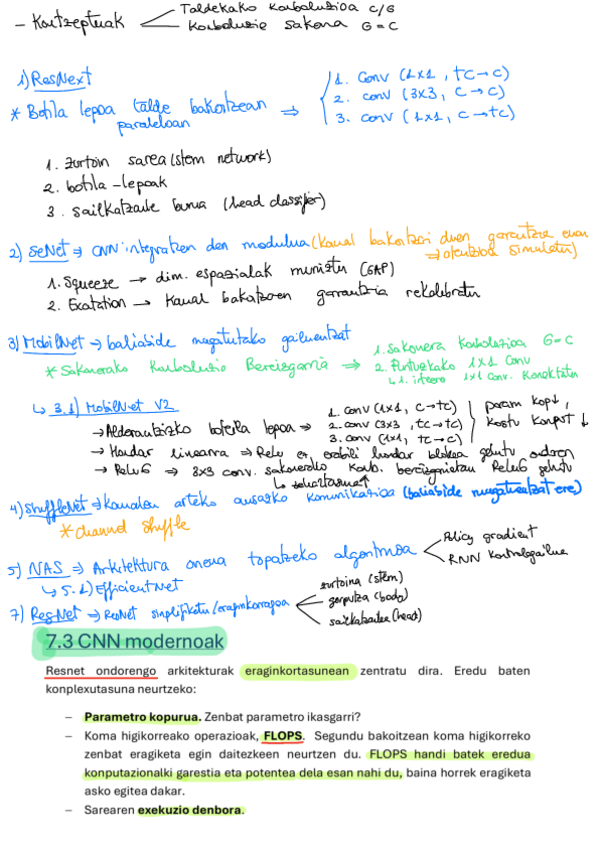 - Kontzeptuak
Taldekako konboluzioa C/G
Konboluzio sakona G=C
1) ResNext
* Botila lepoa talde bakoitzean paraleloan ⇒
1. Conv (1x1, tC→c)
2. conv (3x3, C→C)
3. conv (1x1, C→tC)
1. zurtoin sarea (stem network)
2. botila-lepoak
3. sailkatzaile burua (head classifier)
2) SeNet ⇒ CNN integratzen den modulua (Kanal bakoitzari duen garrantzia eman
⇒ atentzioa simulatu)
1. Squeeze → dim. espazialak murriztu (GAP)
2. Exatation → Kanal bakoitzaren garrantzia rekalibratu
3) MobilNet ⇒ baliabide mugatutako gailuentzat
* Sakonerako Konboluzio Bereizgarria ⇒
1. Sakonera Konboluzioa G=C
2. Puntukako 1x1 Conv
↳ 1. irteera 1x1 conv. Konektatu
↳ 3.1) MobilNet V2
→ Alderantzizko botella lepoa ⇒
1. conv (1x1, C→tC)
2. conv (3x3, tC→tC)
3. conv (1x1, tC→C)
param kop↓,
kostu konput ↓
→ Hondar linearra ⇒ Relu ez erabili hondar blokea gehitu ondoren
→ Relu6 ⇒ 3x3 conv. sakonerako konb. bereizgarrietan Relu6 gehitu
4) ShuffleNet ⇒ kanalen arteko ausazko komunikazioa (baliabide mugatuentzat ere)
* channel shuffle
5) NAS ⇒ Arkitektura onena topatzeko algoritmoa
Policy gradient
RNN kontrolagailua
↳ 5.1) EfficientNet
7) RegNet ⇒ ResNet sinplifikatu/eraginkorragoa
zurtoina (stem)
gorputza (body)
sailkatzailea (head)
7.3 CNN modernoak
Resnet ondorengo arkitekturak eraginkortasunean zentratu dira. Eredu baten
konplexutasuna neurtzeko:
– Parametro kopurua. Zenbat parametro ikasgarri?
– Koma higikorreako operazioak, FLOPS. Segundu bakoitzean koma higikorreko
zenbat eragiketa egin daitezkeen neurtzen du. FLOPS handi batek eredua
konputazionalki garestia eta potentea dela esan nahi du, baina horrek eragiketa
asko egitea dakar.
– Sarearen exekuzio denbora.